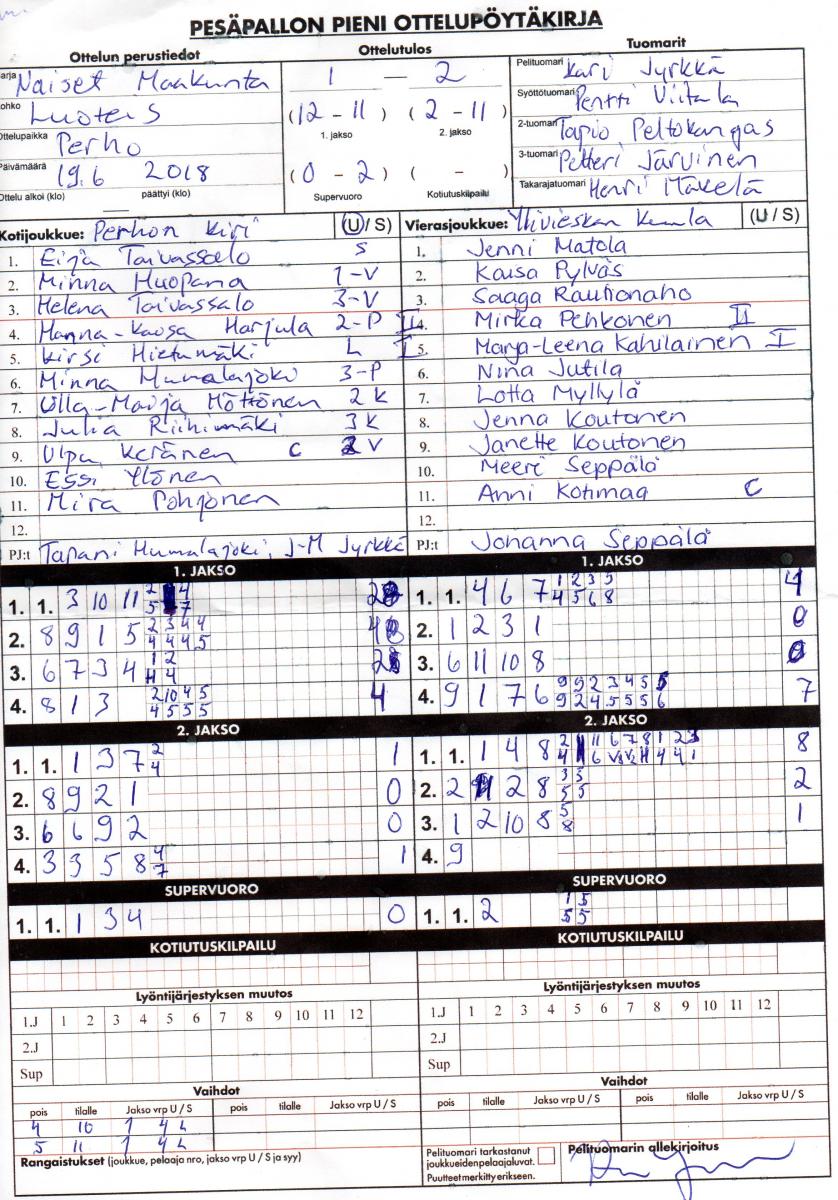 PESÄPALLON PIENI OTTELUPÖYTÄKIRJA
Ottelun perustiedot
Ottelutulos
Tuomarit
Sarja Naiset Maakunta
Lohko
Ottelupaikka Perho
Päivämäärä 19.6 2018
Ottelu alkoi (klo) päättyi (klo)
1 – 2
(12 - 11) (2 - 11)
1. jakso 2. jakso
(0 - 2) ( - )
Supervuoro Kotiutuskilpailu
Pelituomari Kari Jyrkkä
Syöttötuomari Pentti Viitala
2-tuomari Tapio Peltokangas
3-tuomari Petteri Järvinen
Takarajatuomari Henri Mäkelä
Kotijoukkue: Perhon Kiri (U / S)
1. Eija Taivassalo S
2. Minna Huopana 1-V
3. Helena Taivassalo 3-V
4. Hanna-Kaisa Harjula 2-P II
5. Kirsi Hietamäki L I
6. Minna Humalajoki 3-P
7. Ulla-Maija Möttönen 2 K
8. Julia Riihimäki 3 K
9. Ulpu Keränen C 2 V
10. Essi Ylönen
11. Mira Pohjonen
12.
PJ:t Tapani Humalajoki, J-M Jyrkkä
Vierasjoukkue: Ylivieskan Kuula (U / S)
1. Jenni Matola
2. Kaisa Pylväs
3. Saaga Rautionaho
4. Mirka Pehkonen II
5. Marja-Leena Kahilainen I
6. Nina Jutila
7. Lotta Myllylä
8. Jenna Koutonen
9. Janette Koutonen
10. Meeri Seppälä
11. Anni Kotimaa C
12.
PJ:t Johanna Seppälä
1. JAKSO
1. 1. 3 10 11 2
2. 8 9 1 5 2 3 4 4 4
4 4 4 5
3. 6 7 3 4 1 2 2
4. 8 1 3 2 10 4 5 4
4 5 5 5
1. JAKSO
1. 1. 4 6 7 1 2 3 5 4
4 5 6 8
2. 1 2 3 1 0
3. 6 11 10 8 0
4. 9 1 7 6 9 9 2 3 4 5 5 7
9 2 4 5 5 5 6
2. JAKSO
1. 1. 1 3 7 2 1
4
2. 8 9 2 1 0
3. 6 6 9 2 0
4. 3 3 5 8 4 1
7
2. JAKSO
1. 1. 1 4 8 8
2. 2 2 8 3 5 2
5 5
3. 1 2 10 8 5 1
8
4. 9
SUPERVUORO
1. 1. 1 3 4 0
SUPERVUORO
1. 1. 2 1 5
5 5
KOTIUTUSKILPAILU
KOTIUTUSKILPAILU
Lyöntijärjestyksen muutos
1.J 1 2 3 4 5 6 7 8 9 10 11 12
2.J
Sup
Lyöntijärjestyksen muutos
1.J 1 2 3 4 5 6 7 8 9 10 11 12
2.J
Sup
Vaihdot
pois tilalle Jakso vrp U / S pois tilalle Jakso vrp U / S
4 10 1 4 L
5 11 1 4 L
Vaihdot
pois tilalle Jakso vrp U / S pois tilalle Jakso vrp U / S
Rangaistukset (joukkue, pelaaja nro, jakso vrp U / S ja syy)
Pelituomari tarkastanut
joukkueidenpelaajaluvat.
Puutteet merkitty erikseen.
Pelituomarin allekirjoitus